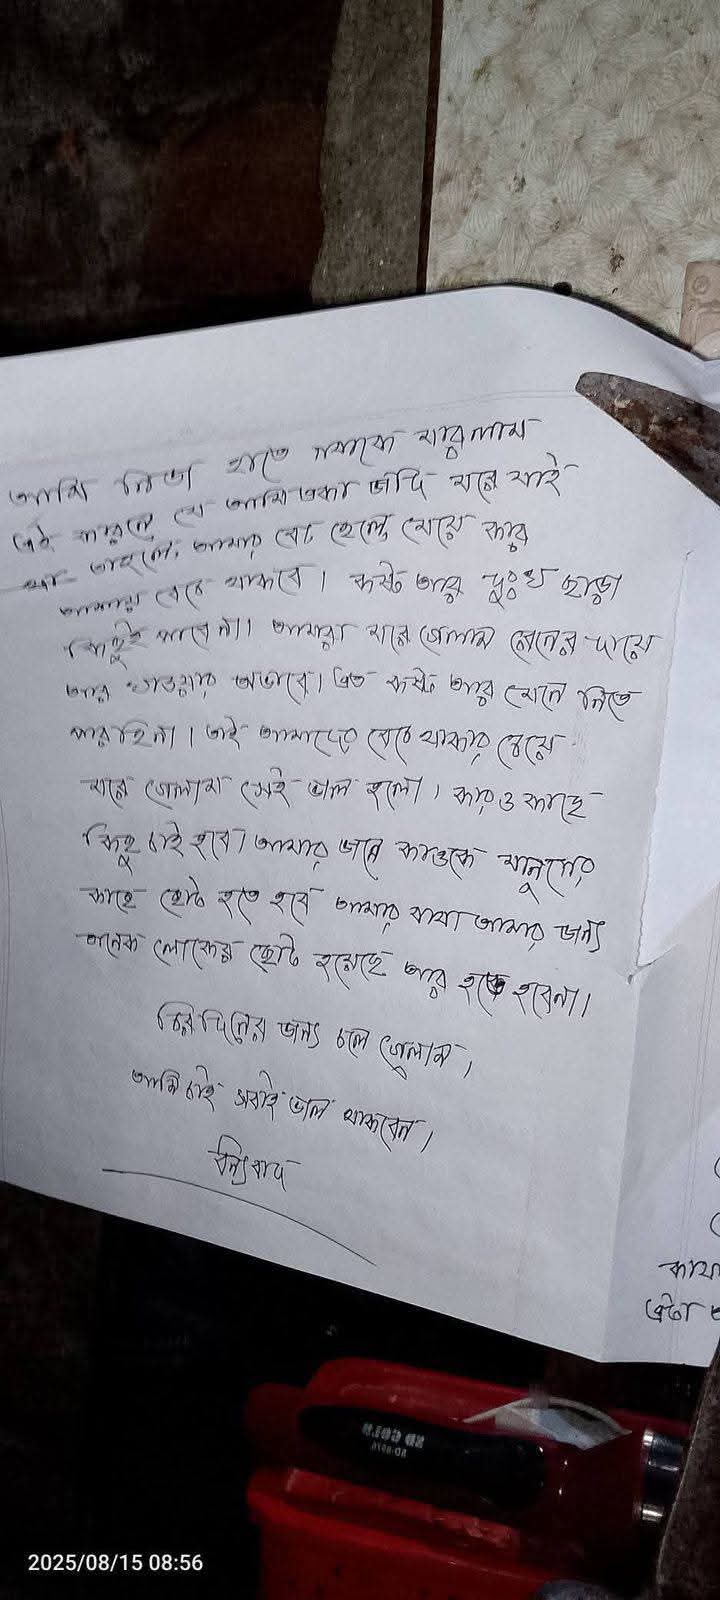 আমি নিজ হাতে সবাকে মারলাম
এই কারনে যে আমি একা জদি মরে যাই
তাহলে, আমার বৌ ছেলে মেয়ে কার
আসায় বেচে থাকবে। কষ্ট আর দুঃখ ছাড়া
কিছুই পাবেনা। আমরা মরে গেলাম রিনের দায়ে
আর খাওয়ার অভাবে। এত কষ্ট আর মেনে নিতে
পারছিনা। তাই আমাদের বেচে থাকার চেয়ে
মরে গেলাম সেই ভাল হলো। কারও কাছে
কিছু চাই হবে। আমার জন্নে কাওকে মানুষের
কাছে ছোট হতে হবে আমার বাবা আমার জন্য
অনেক লোকের ছোট হয়েছে আর হতে হবেনা।
চির দিনের জন্য চলে গেলাম।
আমি চাই সবাই ভাল থাকবেন।
ধন্যবাদ
এটা
2025/08/15 08:56